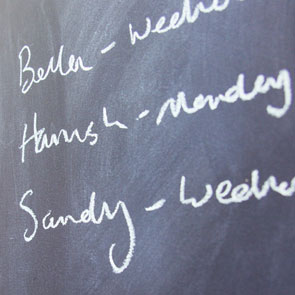 Bella - Weekend
Hamish - Monday
Sandy - Weeken